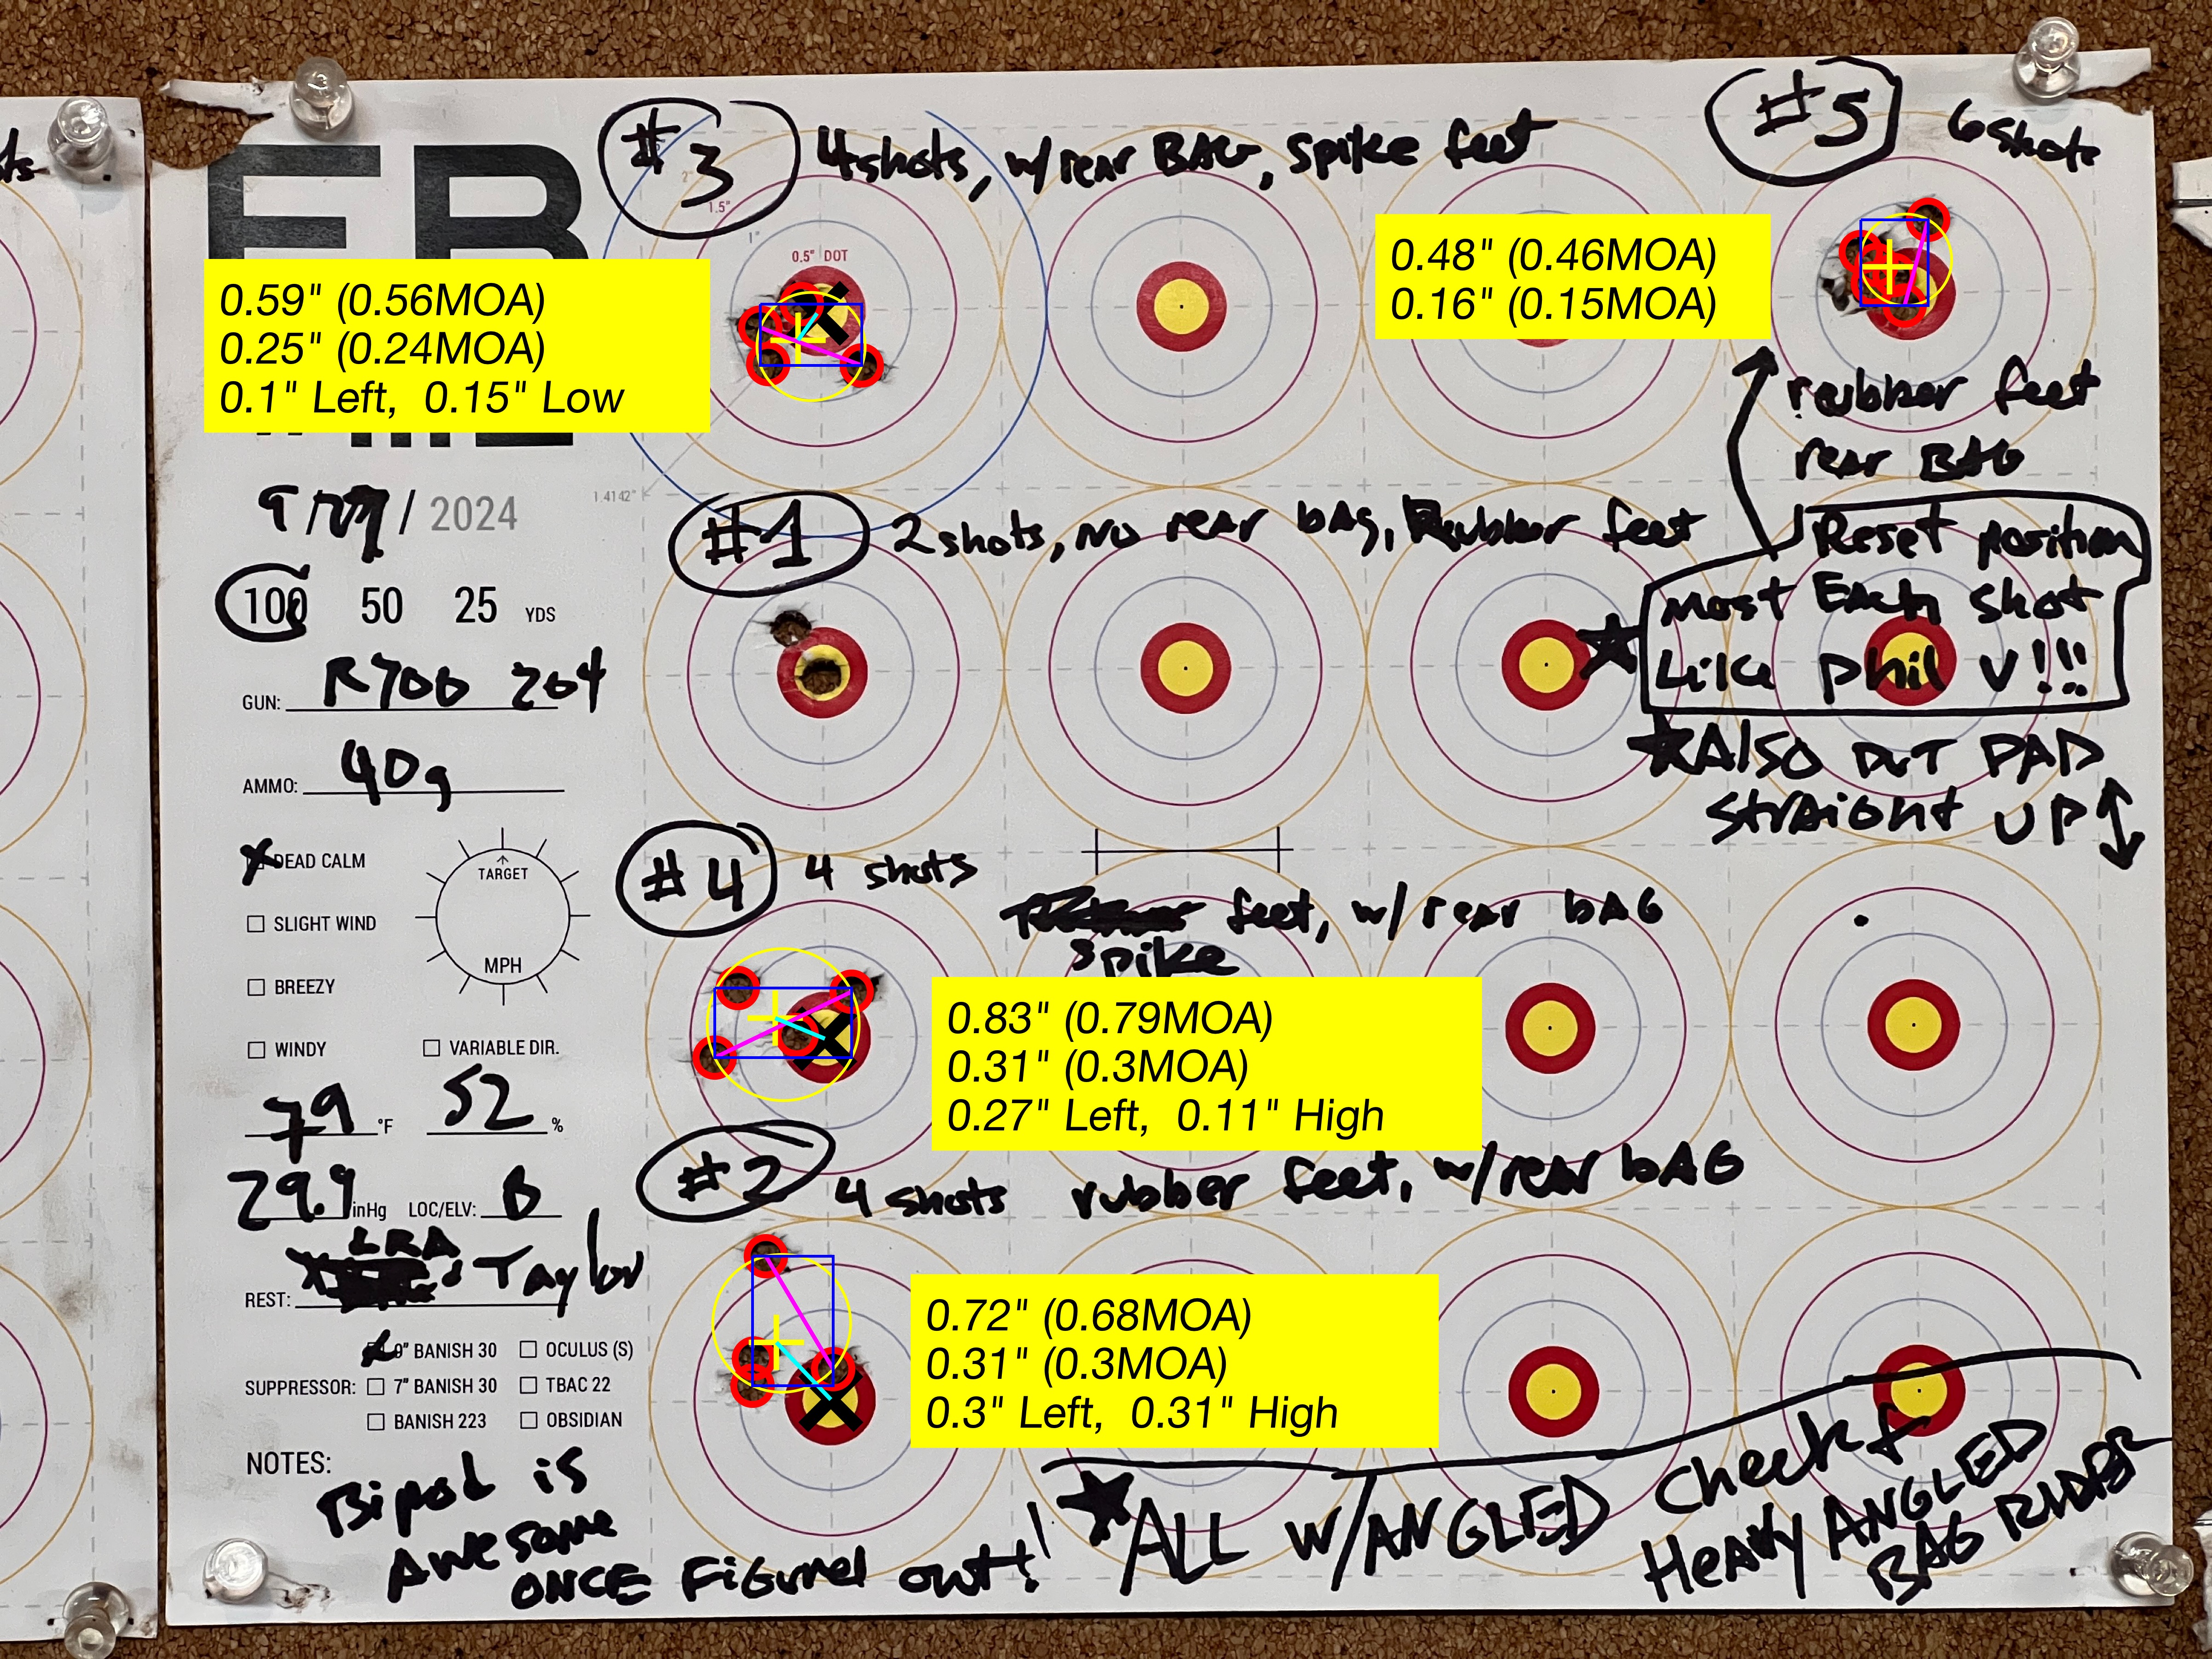 #3
4 shots, w/ rear BAG, spike feet
#5
6 shots
2"
1.5"
1"
0.5" DOT
0.59" (0.56MOA)
0.25" (0.24MOA)
0.1" Left, 0.15" Low
0.48" (0.46MOA)
0.16" (0.15MOA)
rubber feet
rear BAG
1.4142"
/ 2024
#1
2 shots, No rear bag, Rubber feet
Reset position
Most Each Shot
Like Phil V!!!
100 50 25 YDS
GUN: R700 204
AMMO: 40g
Also put PAD
straight UP
DEAD CALM
SLIGHT WIND
BREEZY
WINDY
VARIABLE DIR.
TARGET
MPH
#4
4 shots
feet, w/ rear bAG
spike
0.83" (0.79MOA)
0.31" (0.3MOA)
0.27" Left, 0.11" High
79 °F 52 %
29.9 inHg LOC/ELV: B
#2
4 shots rubber feet, w/ rear bAG
LRA
REST: Taylor
0.72" (0.68MOA)
0.31" (0.3MOA)
0.3" Left, 0.31" High
SUPPRESSOR:
9" BANISH 30
OCULUS (S)
7" BANISH 30
TBAC 22
BANISH 223
OBSIDIAN
NOTES:
Bipod is
Awesome
ONCE Figured out!
ALL w/ ANGLED cheek &
Heavy ANGLED
BAG RIDER